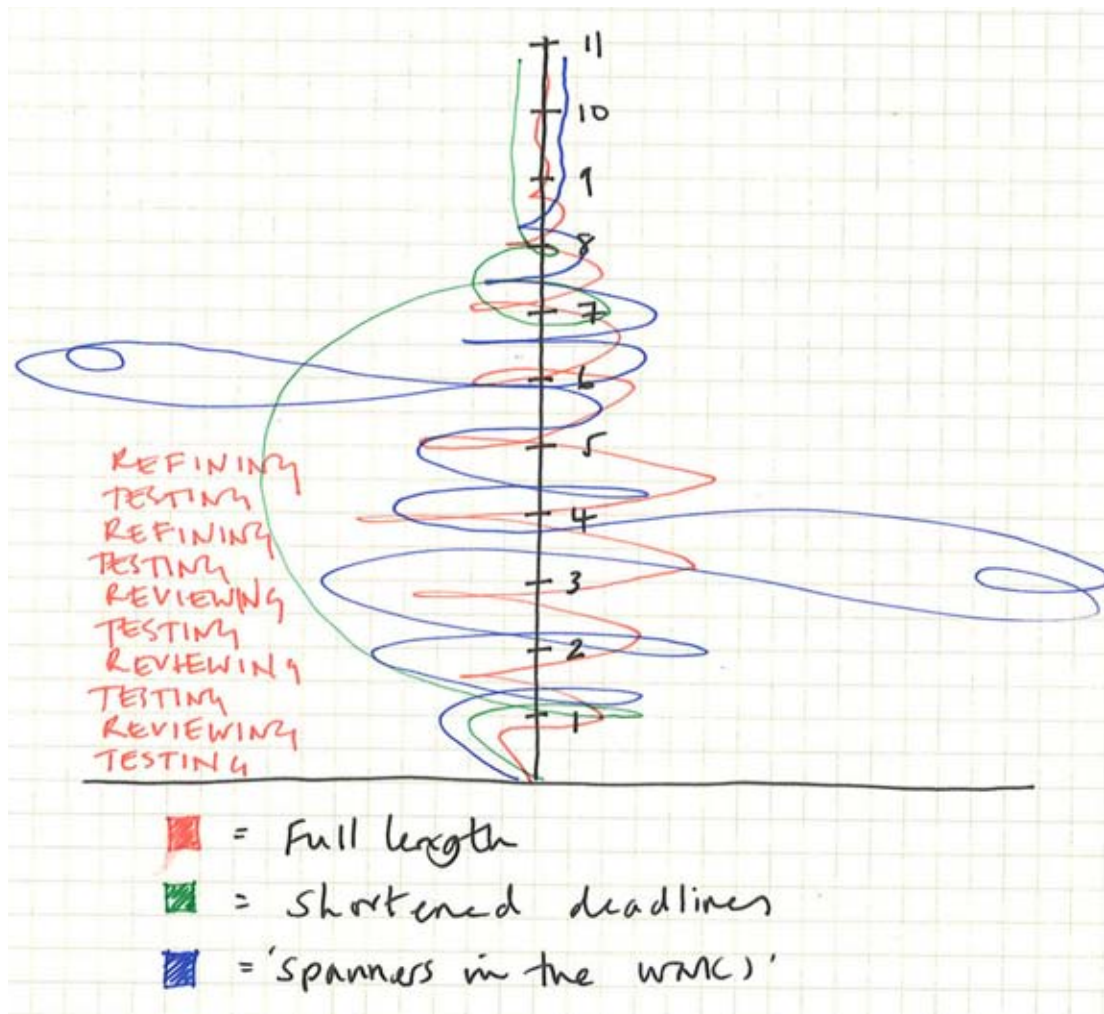 11
10
9
8
7
6
5
4
3
2
1
REFINING
TESTING
REFINING
TESTING
REVIEWING
TESTING
REVIEWING
TESTING
REVIEWING
TESTING
= Full length
= shortened deadlines
= 'spanners in the works'